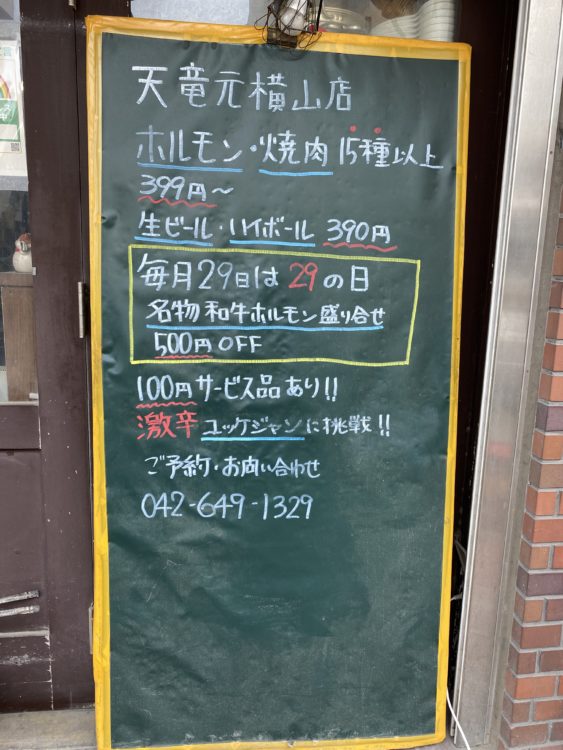 天竜元横山店
ホルモン・焼肉 15種以上
399円～
生ビール・ハイボール 390円
毎月29日は 29 の日
名物 和牛ホルモン盛り合せ
500円 OFF
100円 サービス品 あり!!
激辛 ユッケジャンに挑戦!!
ご予約・お問い合わせ
042-649-1329